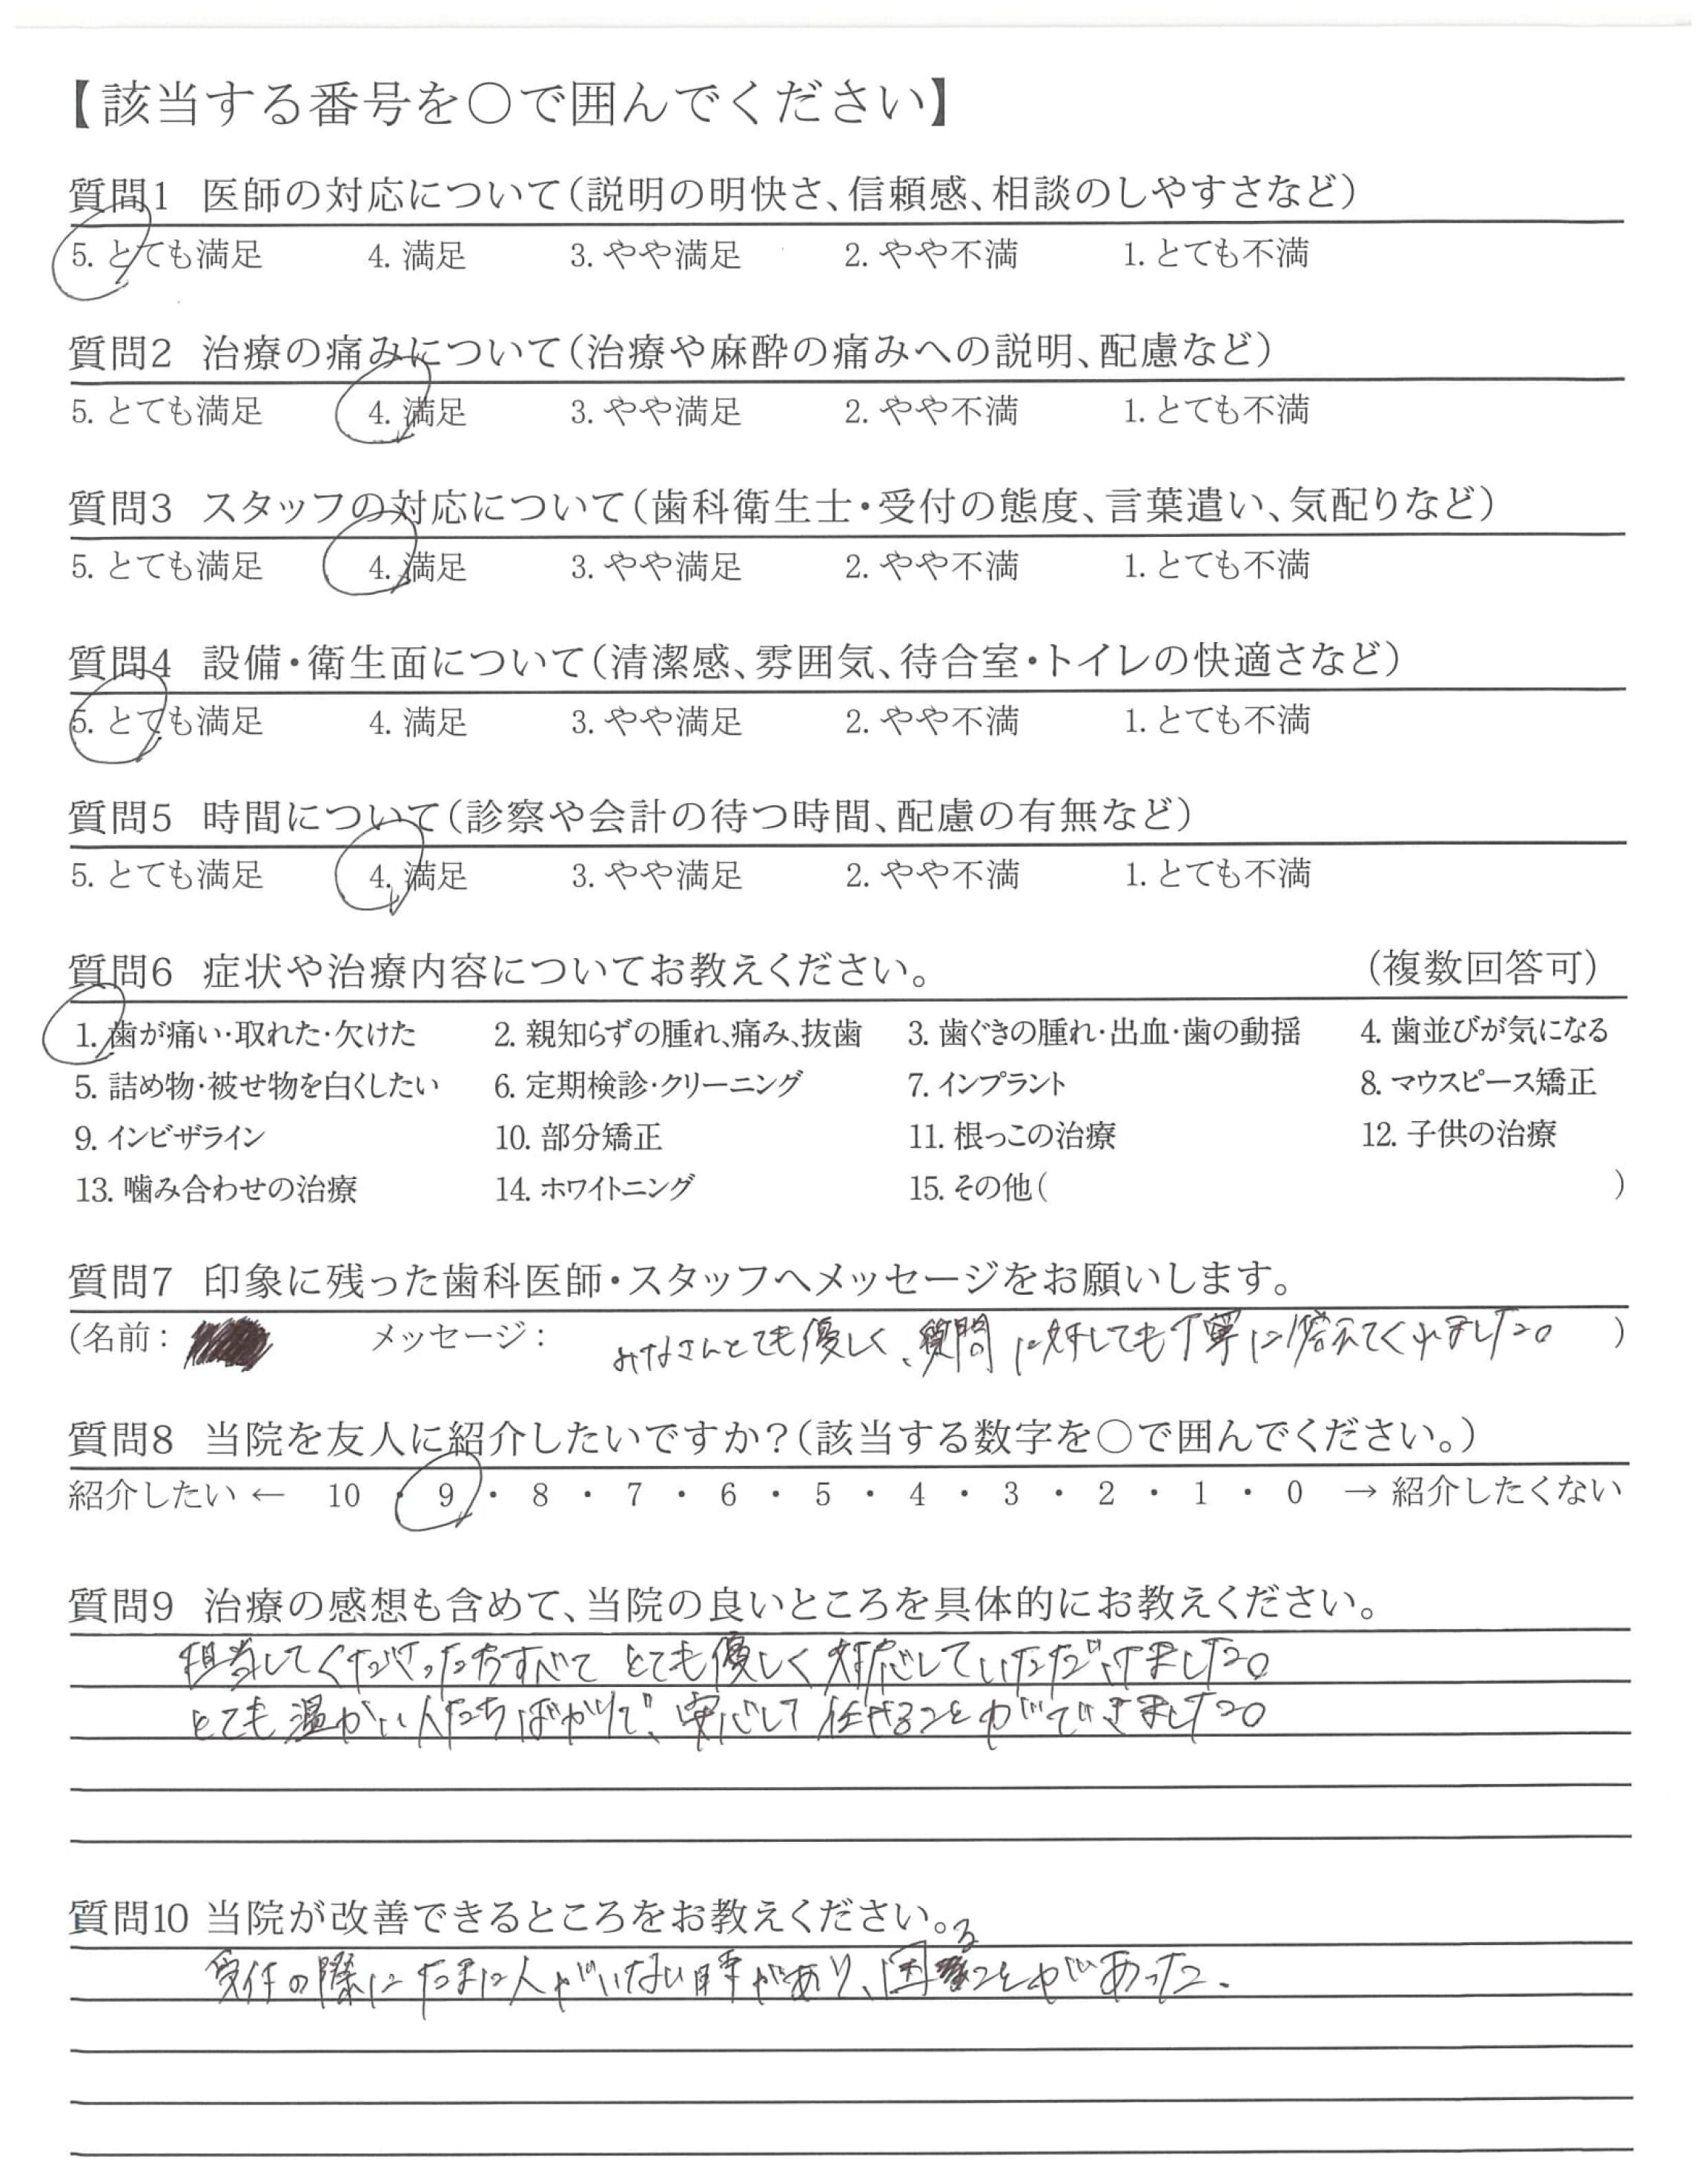 【該当する番号を〇で囲んでください】
質問1 医師の対応について（説明の明快さ、信頼感、相談のしやすさなど）
5. とても満足 4. 満足 3. やや満足 2. やや不満 1. とても不満
質問2 治療の痛みについて（治療や麻酔の痛みへの説明、配慮など）
5. とても満足 4. 満足 3. やや満足 2. やや不満 1. とても不満
質問3 スタッフの対応について（歯科衛生士・受付の態度、言葉遣い、気配りなど）
5. とても満足 4. 満足 3. やや満足 2. やや不満 1. とても不満
質問4 設備・衛生面について（清潔感、雰囲気、待合室・トイレの快適さなど）
5. とても満足 4. 満足 3. やや満足 2. やや不満 1. とても不満
質問5 時間について（診察や会計の待つ時間、配慮の有無など）
5. とても満足 4. 満足 3. やや満足 2. やや不満 1. とても不満
質問6 症状や治療内容についてお教えください。 （複数回答可）
1. 歯が痛い・取れた・欠けた 2. 親知らずの腫れ、痛み、抜歯 3. 歯ぐきの腫れ・出血・歯の動揺 4. 歯並びが気になる
5. 詰め物・被せ物を白くしたい 6. 定期検診・クリーニング 7. インプラント 8. マウスピース矯正
9. インビザライン 10. 部分矯正 11. 根っこの治療 12. 子供の治療
13. 噛み合わせの治療 14. ホワイトニング 15. その他（ ）
質問7 印象に残った歯科医師・スタッフへメッセージをお願いします。
（名前： メッセージ： みなさんとても優しく、質問に対しても丁寧に答えてくれました。 ）
質問8 当院を友人に紹介したいですか？（該当する数字を〇で囲んでください。）
紹介したい ← 10 ・ 9 ・ 8 ・ 7 ・ 6 ・ 5 ・ 4 ・ 3 ・ 2 ・ 1 ・ 0 → 紹介したくない
質問9 治療の感想も含めて、当院の良いところを具体的にお教えください。
担当してくださった方すべて とても優しく対応していただけました。
とても温かい人たちばかりで、安心して任せることができました。
質問10 当院が改善できるところをお教えください。
受付の際にたまに人がいない時があり、困ることがあった。